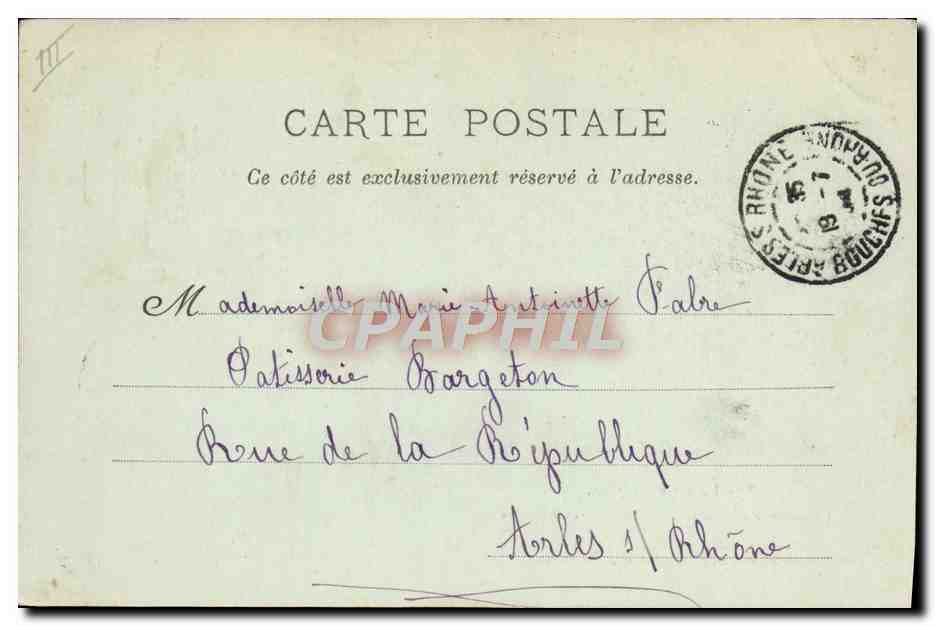 III
CARTE POSTALE
Ce côté est exclusivement réservé à l'adresse.
ARLES S RHONE BOUCHES DU RHONE
Mademoiselle Marie-Antoinette Fabre
CPAPHIL
Patisserie Bargeton
Rue de la République
Arles s/ Rhône